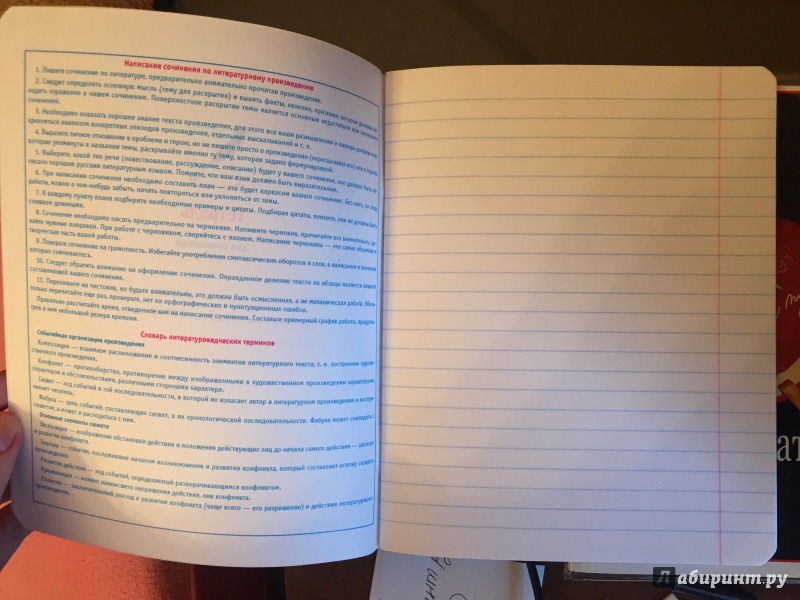 Написание сочинения по литературному произведению
1. Пишите сочинение по литературе, предварительно внимательно прочитав произведение.
2. Следует определить основную мысль (тему для раскрытия) и выявить факты, явления, признаки, которые должны на-
ходить отражение в вашем сочинении. Поверхностное раскрытие темы является основным недостатком при написании
сочинений.
3. Необходимо показать хорошее знание текста произведения, для этого все ваши размышления и выводы должны под-
крепляться анализом конкретных эпизодов произведения, отдельных высказываний и т. п.
4. Выразите личное отношение к проблеме и герою, но не пишите просто о произведении (пересказывая его) или о героях,
которые упомянуты в названии темы, раскрывайте именно ту тему, которая задана формулировкой.
5. Выберите, какой тип речи (повествование, рассуждение, описание) будет у вашего сочинения, оно должно быть на-
писано хорошим русским литературным языком. Помните, что ваш язык должен быть выразительным.
6. При написании сочинения необходимо составить план — это будет каркасом вашего сочинения. Без него, по ходу
работы, можно о чем-нибудь забыть, начать повторяться или уклониться от темы.
7. К каждому пункту плана подберите необходимые примеры и цитаты. Подбирая цитаты, помните, они не должны быть
слишком длинными.
8. Сочинение необходимо писать предварительно на черновике. Напишите черновик, прочитайте его внимательно, сде-
лайте нужные поправки. При работе с черновиком, сверяйтесь с планом. Написание черновика — это самая объемная и
творческая часть вашей работы.
9. Поверьте сочинение на грамотность. Избегайте употребление синтаксических оборотов и слов, в написании и значении
которых сомневаетесь.
10. Следует обратить внимание на оформление сочинения. Оправданное деление текста на абзацы является важной
составляющей вашего сочинения.
11. Перепишите на чистовик, но будьте внимательны, это должна быть осмысленная, а не механическая работа.
тельно перечитайте еще раз, проверьте, нет ли орфографических и пунктуационных ошибок.
Правильно рассчитайте время, отведенное вам на написание сочинения. Составьте примерный график работы, предусмо-
трев в нем небольшой резерв времени.
Словарь литературоведческих терминов
Событийная организация произведения
Композиция — взаимное расположение и соотнесенность элементов литературного текста, т. е. построение художе-
ственного произведения.
Конфликт — противоборство, противоречие между изображенными в художественном произведении характерами,
характером и обстоятельствами, различными сторонами характера.
Сюжет — ход событий в той последовательности, в которой их излагает автор в литературном произведении и воспри-
нимает читатель.
Фабула — цепь событий, составляющих сюжет, в их хронологической последовательности. Фабула может совпадать с
сюжетом, а может и расходиться с ним.
Основные элементы сюжета
Экспозиция — изображение обстановки действия и положения действующих лиц до начала самого действия —
и развития конфликта.
Завязка — событие, послужившее началом возникновения и развития конфликта, который составляет основу сюжета
произведения.
Развитие действия — ход событий, определенный разворачивающимся конфликтом.
Кульминация — момент наивысшего напряжения действия, пик конфликта.
Развязка — заключительный эпизод в развитии конфликта (чаще всего — его разрешение) и действии литературного
произведения.
Лабиринт.ру